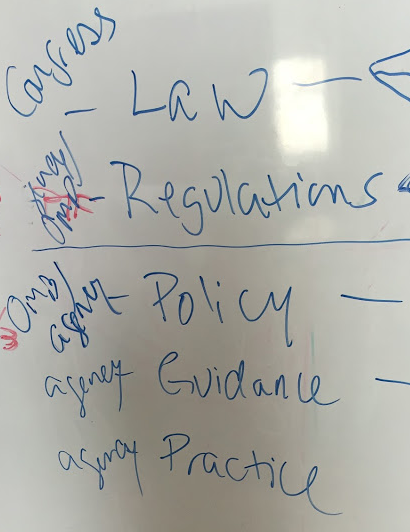 Congress
- Law -
agency/
OMB - Regulations
OMB/
agency - Policy -
agency Guidance -
agency Practice